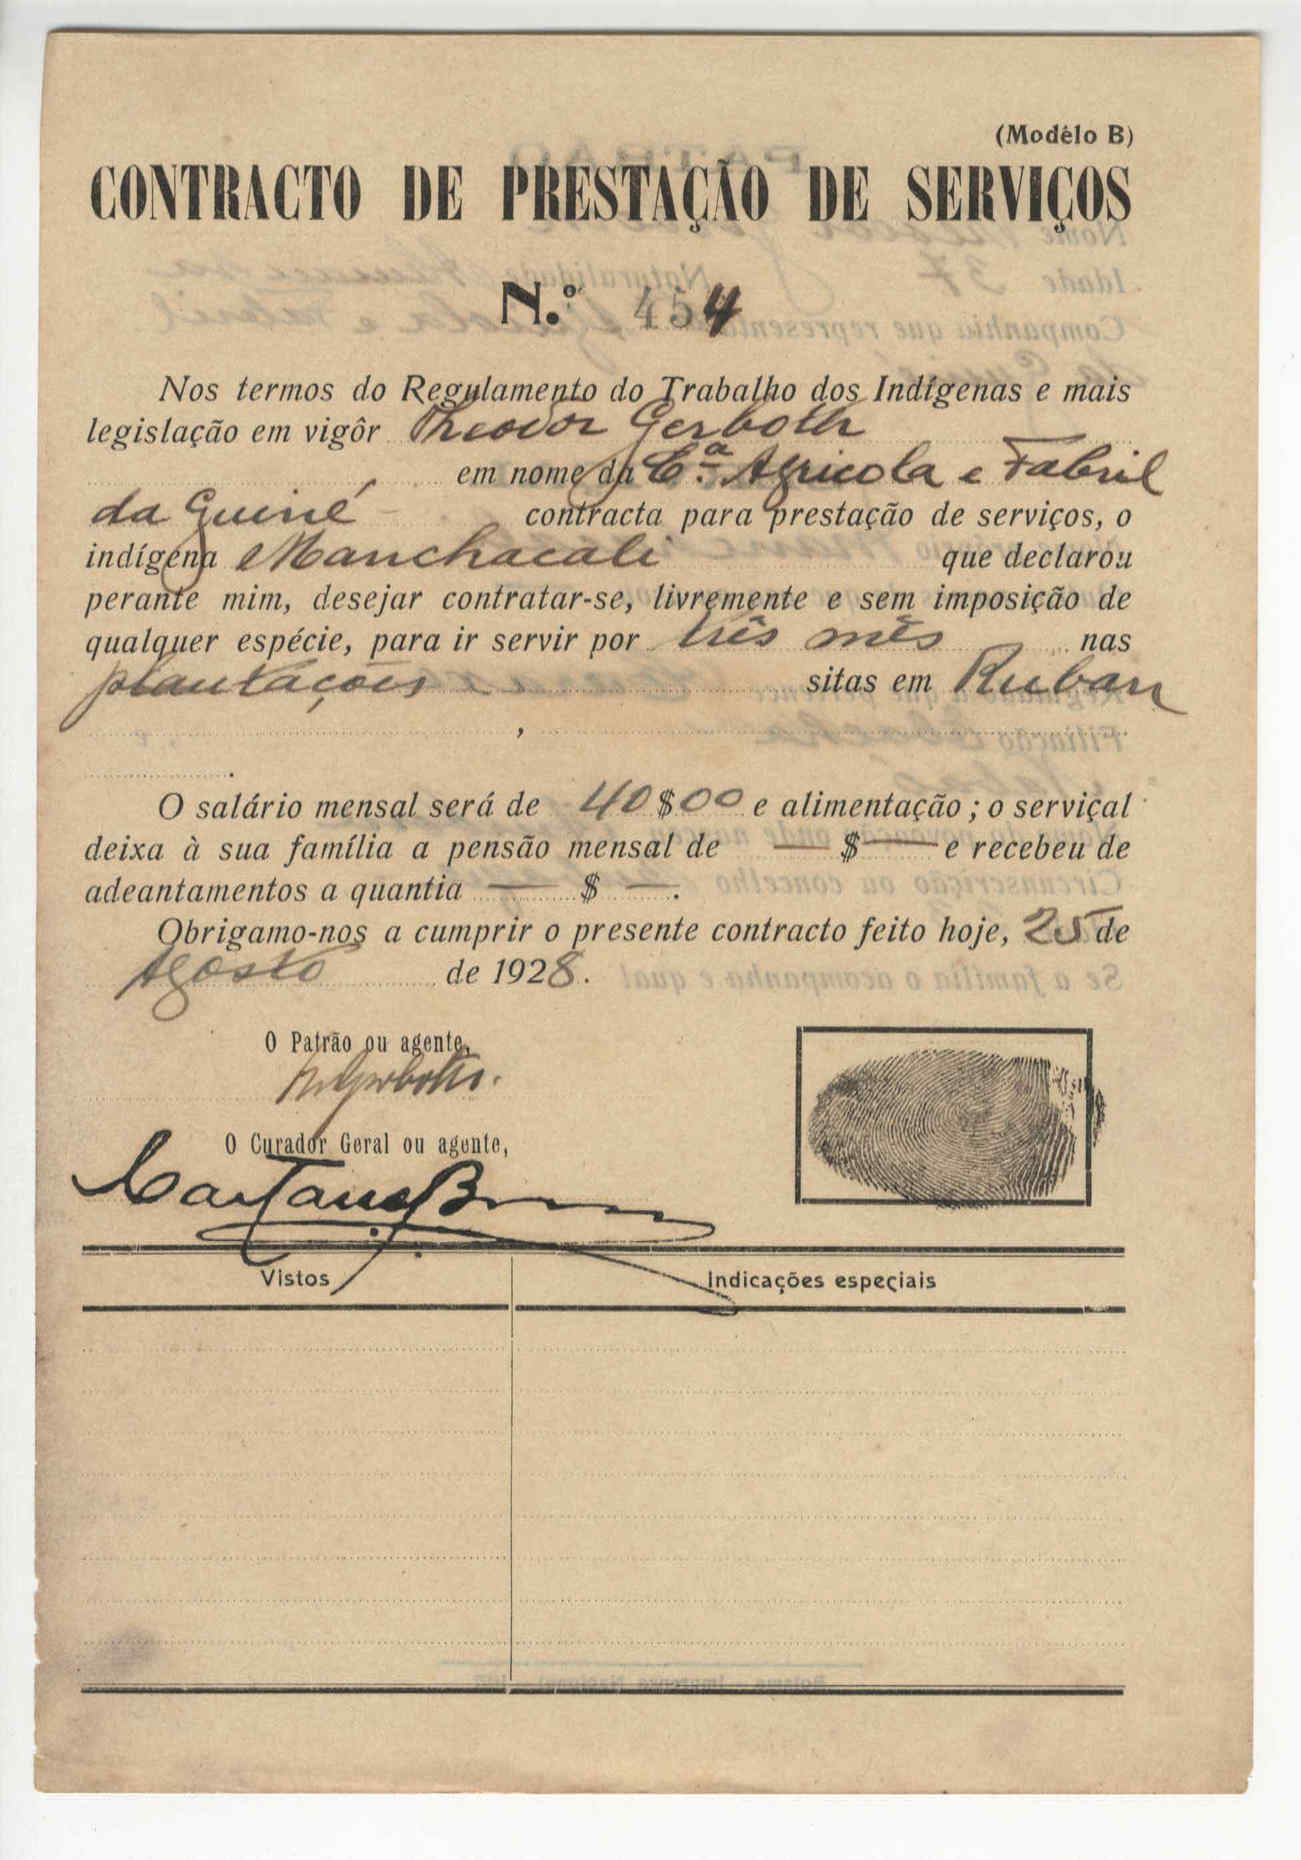 (Modêlo B)
CONTRACTO DE PRESTAÇÃO DE SERVIÇOS
N.º 454
Nos termos do Regulamento do Trabalho dos Indígenas e mais
legislação em vigôr Theodor Gerboth
em nome da C.ª Agricola e Fabril
da Guiné contracta para prestação de serviços, o
indígena Manchacali que declarou
perante mim, desejar contratar-se, livremente e sem imposição de
qualquer espécie, para ir servir por três mês nas
plantações sitas em Ruban
,
.
O salário mensal será de 40$00 e alimentação; o serviçal
deixa à sua família a pensão mensal de — $ — e recebeu de
adeantamentos a quantia — $ —.
Obrigamo-nos a cumprir o presente contracto feito hoje, 25 de
Agosto de 1928.
O Patrão ou agente,
Gerboth.
O Curador Geral ou agente,
Vistos
Indicações especiais